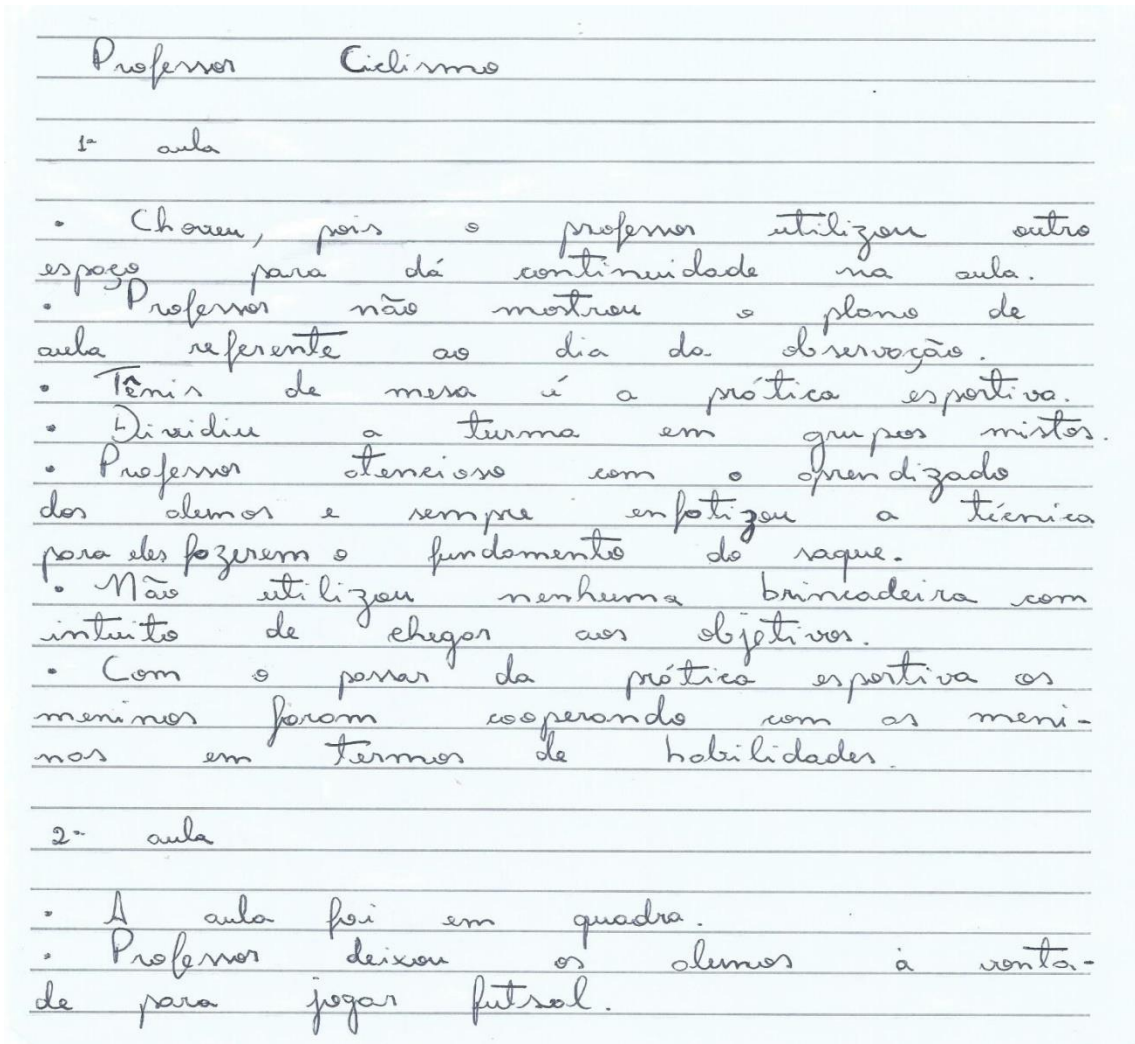 Professor Ciclismo
1ª aula
• Choveu, pois o professor utilizou outro
espaço para dá continuidade na aula.
• Professor não mostrou o plano de
aula referente ao dia da observação.
• Tênis de mesa é a prática esportiva.
• Dividiu a turma em grupos mistos.
• Professor atencioso com o aprendizado
dos alunos e sempre enfatizou a técnica
para eles fazerem o fundamento do saque.
• Não utilizou nenhuma brincadeira com
intuito de chegar aos objetivos.
• Com o passar da prática esportiva os
meninos foram cooperando com as meni-
nas em termos de habilidades.
2ª aula
• A aula foi em quadra.
• Professor deixou os alunos à vonta-
de para jogar futsal.